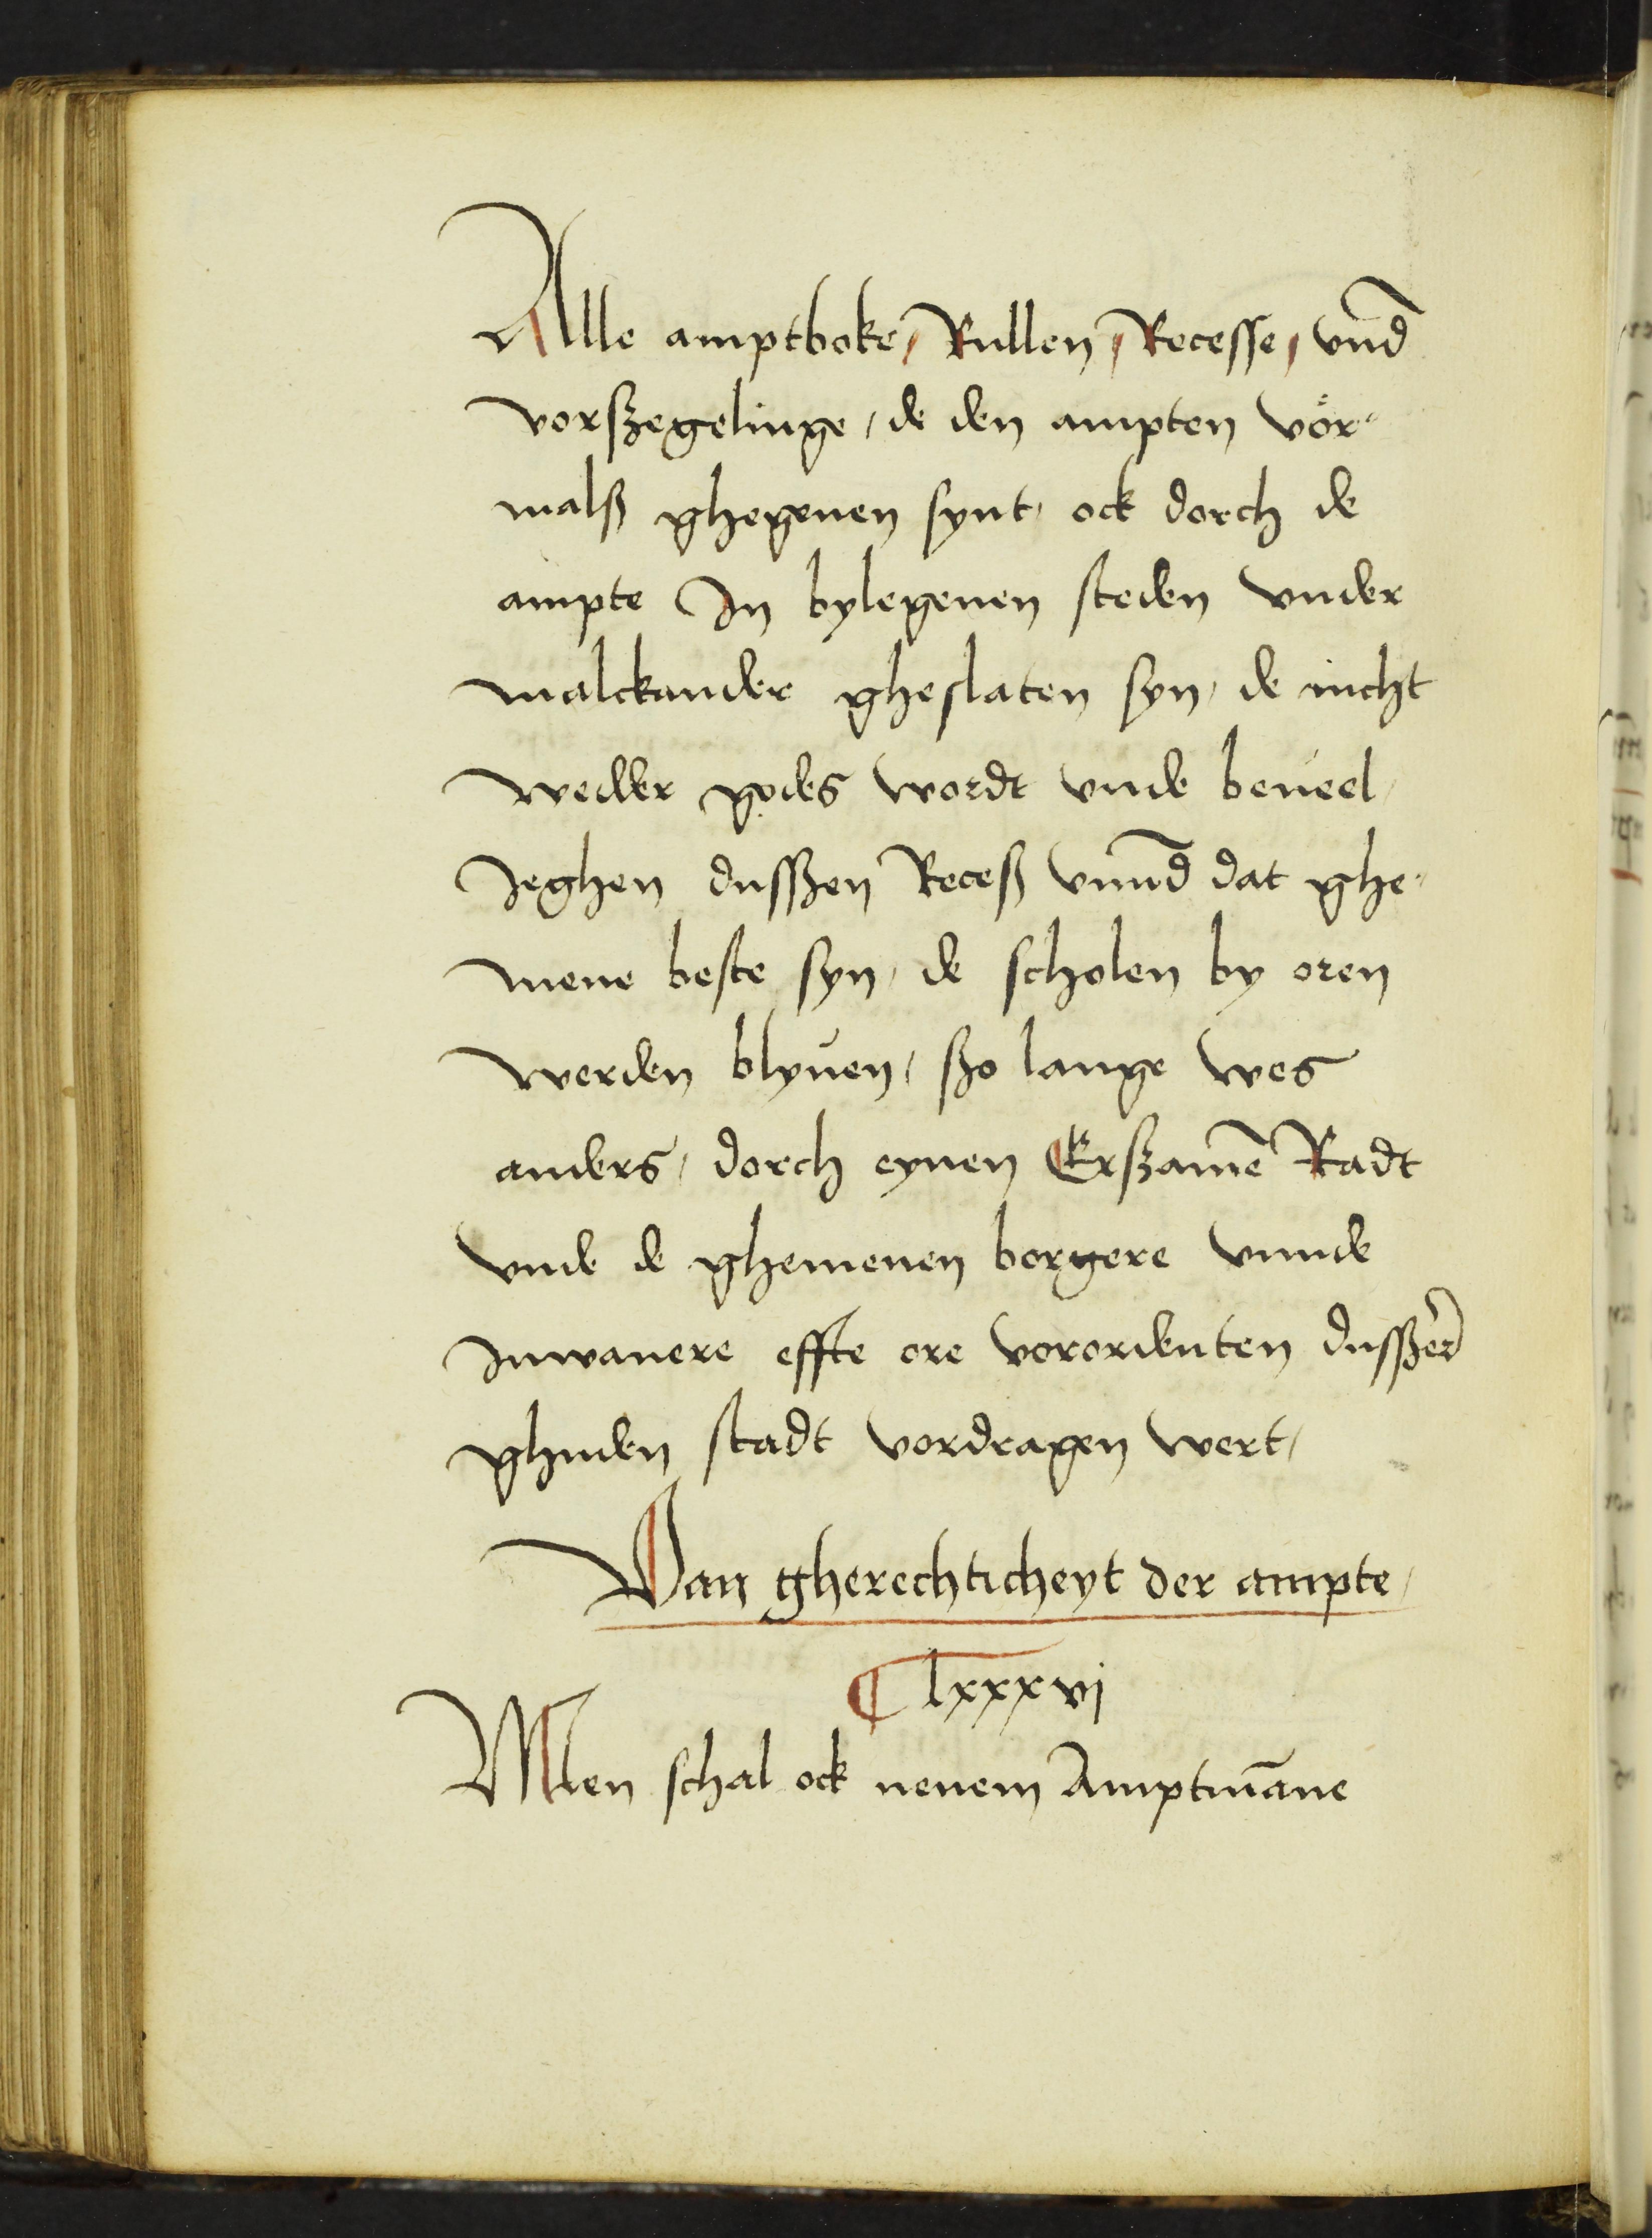 Alle amptboke, Rullen, Recesse, vnd
vorßzegelinge, de den ampten vör-
malß ghegeuen synt, ock dorch de
ampte In bylegenen steden vnder
malckander gheslaten syn, de nicht
wedder godes wordt vnde beueel,
Jeghen dusßen Receß vnnd dat ghe-
mene beste syn, de scholen by oren
werden blyuen, ßo lange wes
anders, dorch eynen Erßamē Radt
vnde de ghemenen borgere vnnde
Inwanere effte ore vorordenten dusßer
ghuden stadt vordragen wert,
Van gherechticheyt der ampte,
¶ lxxxvj
Men schal ock nenem Amptmāne